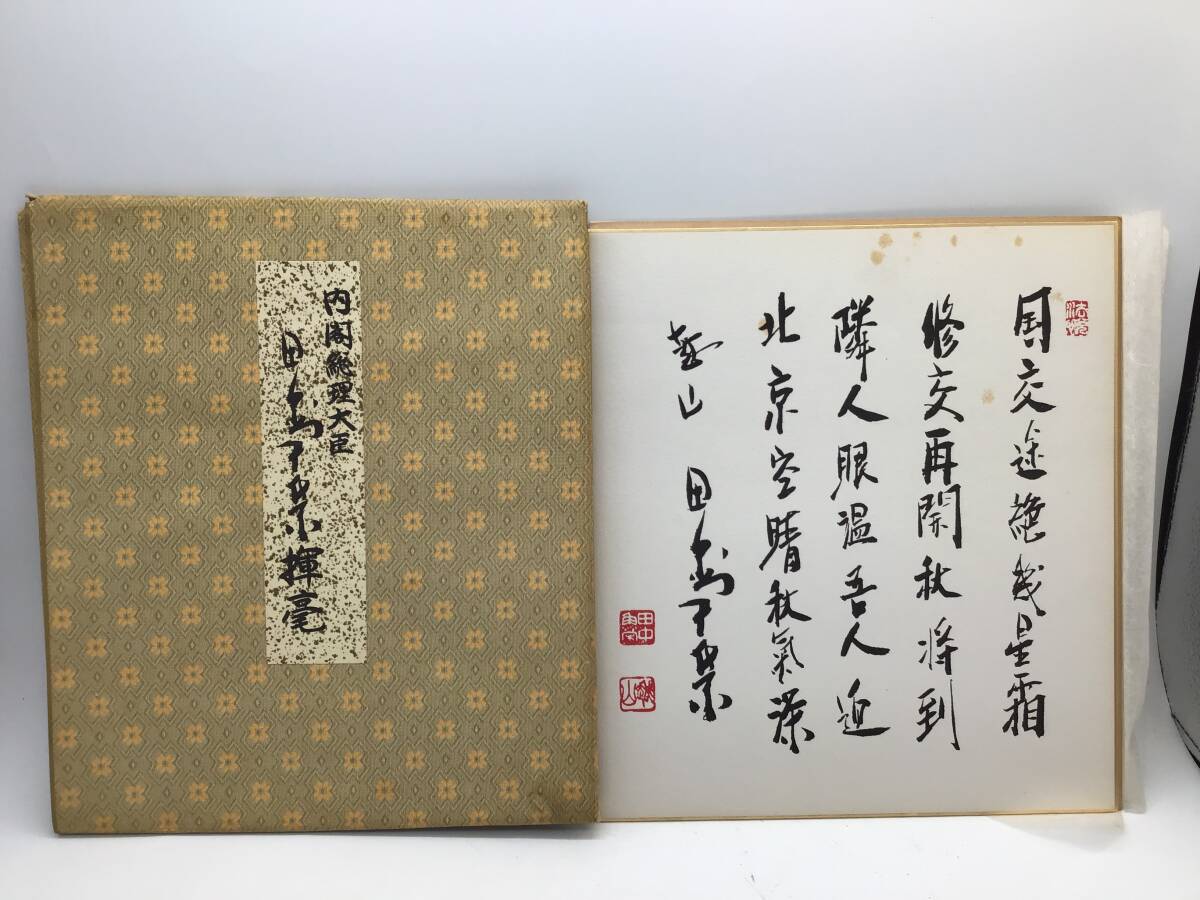 内閣総理大臣
田中角栄揮毫
国交途絶幾星霜
修交再開秋将到
隣人眼温吾人迎
北京空晴秋氣深
越山 田中角栄
田中角栄
越山